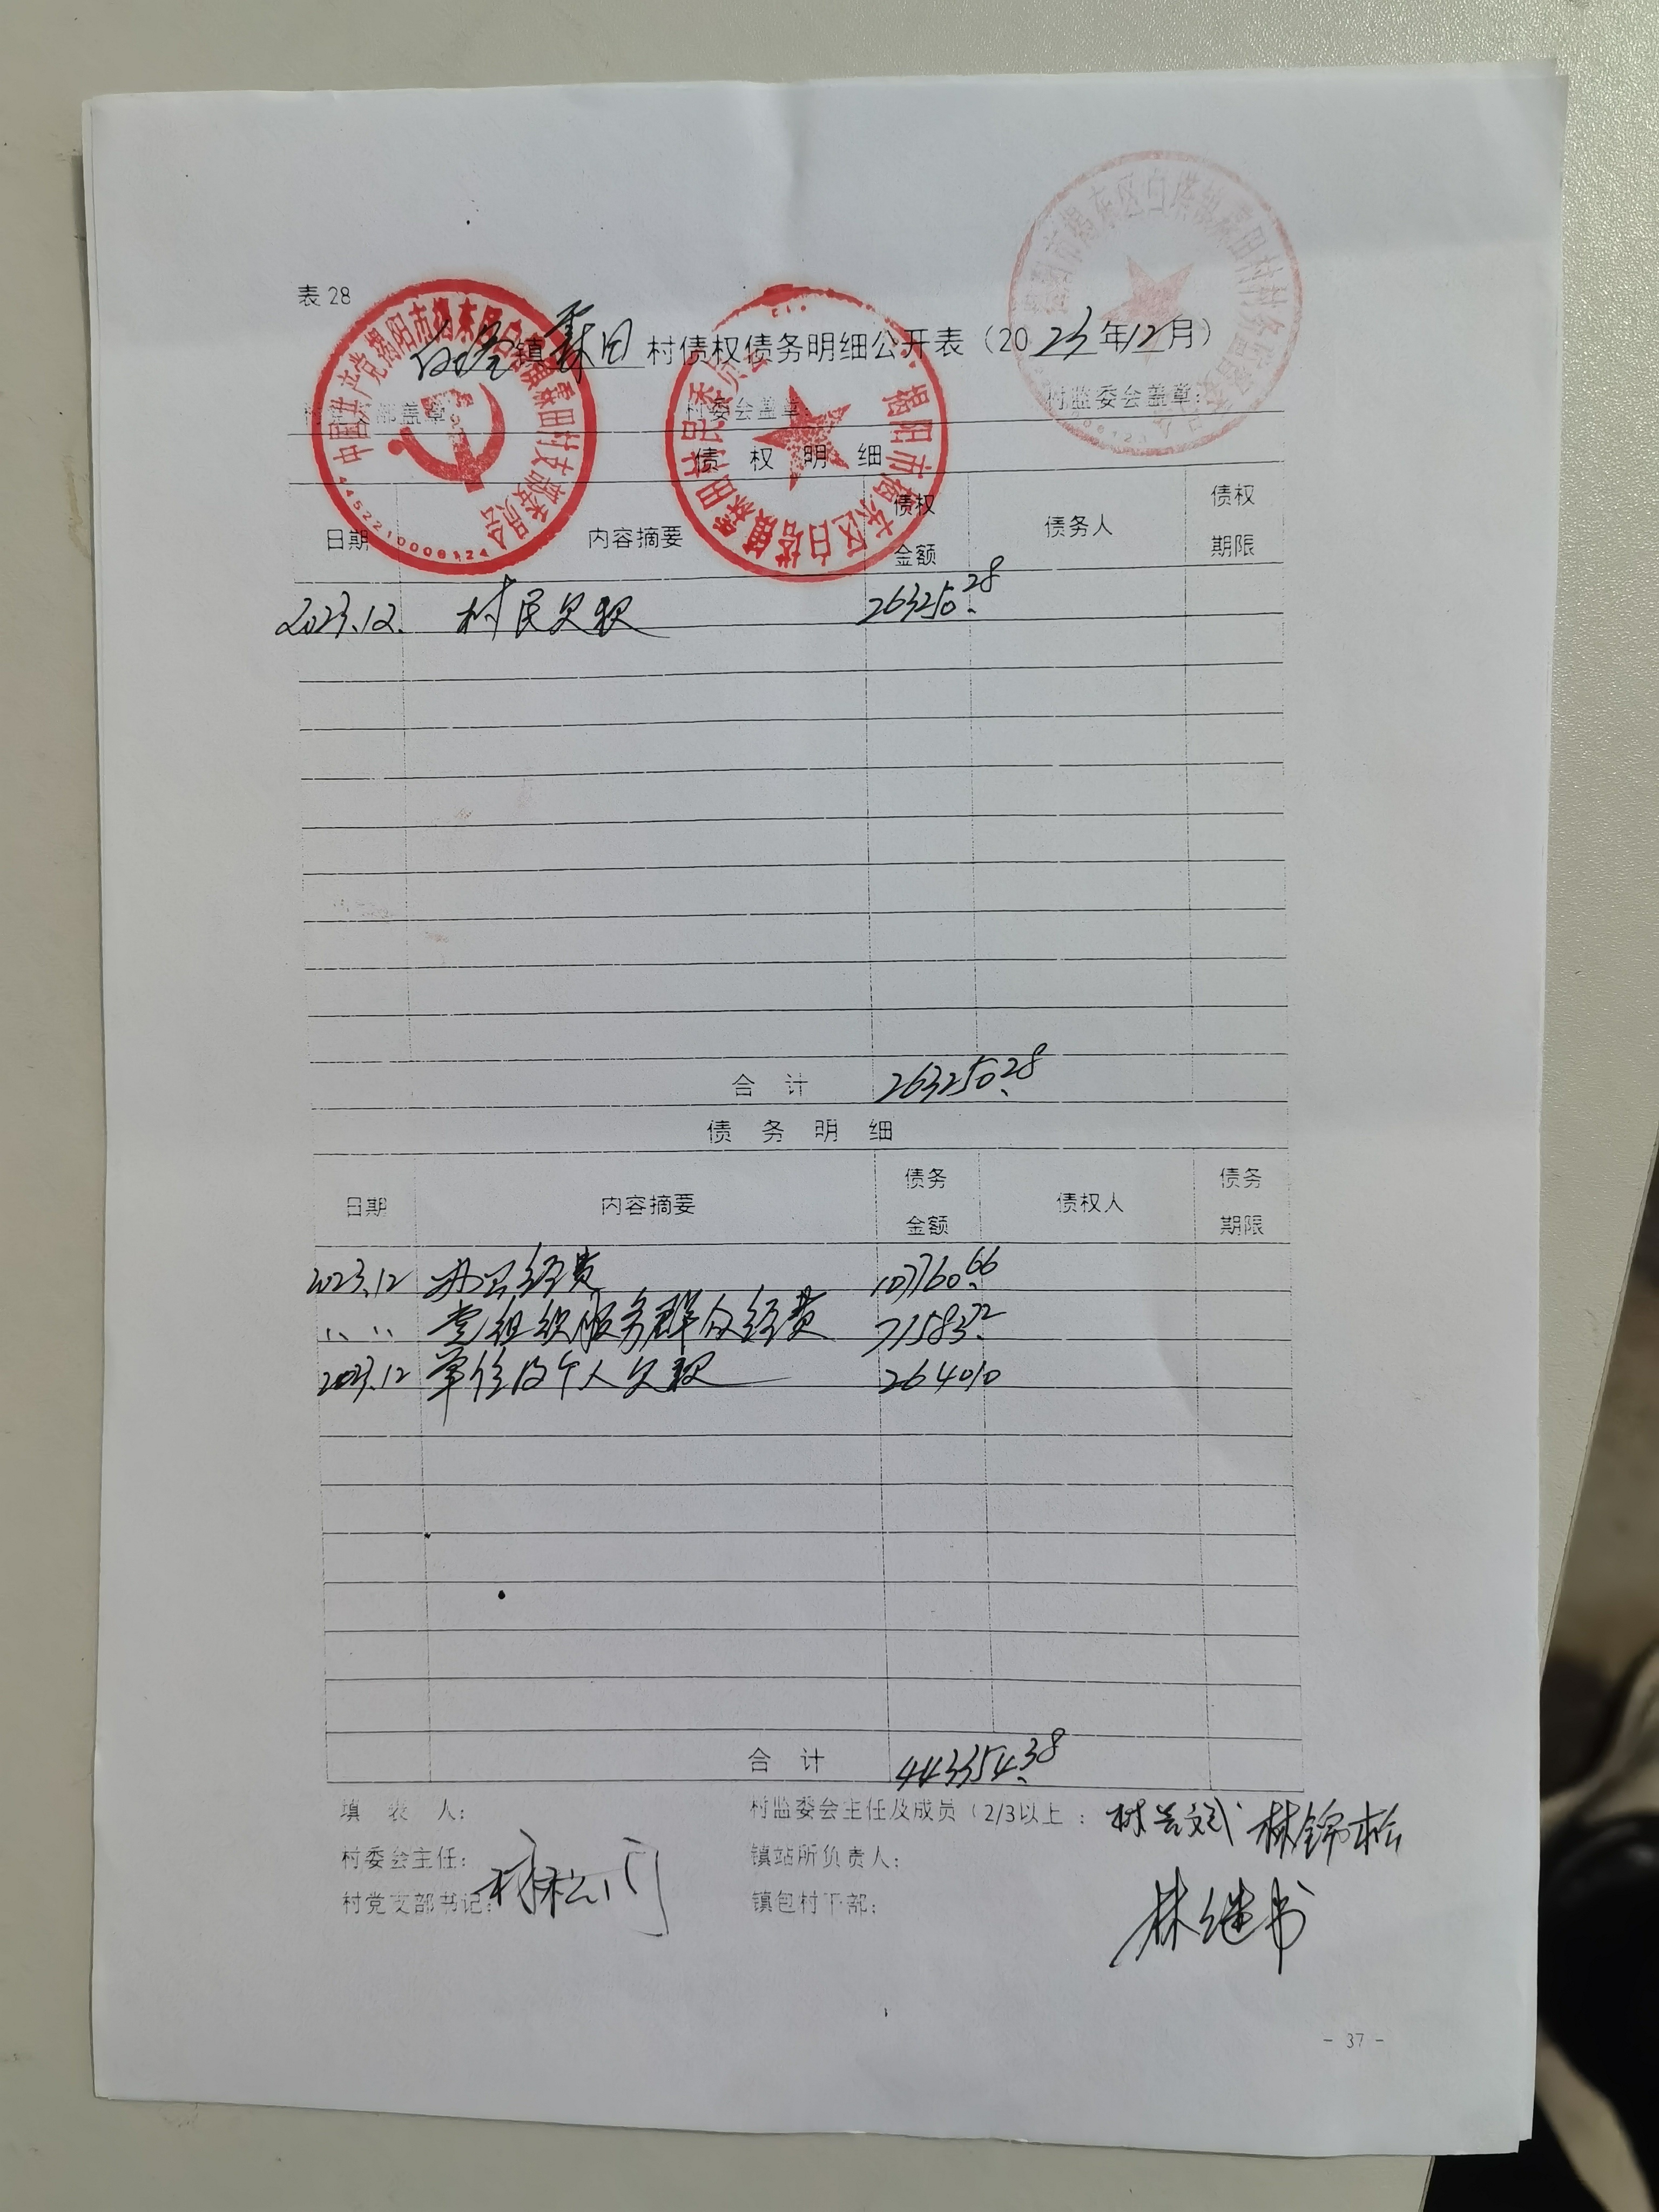 表28
中国共产党揭阳市揭东区白塔镇霖田村支部委员会
揭阳市揭东区白塔镇霖田村村民委员会
揭阳市揭东区白塔镇霖田村村务监督委员会
白塔镇霖田村债权债务明细公开表（2023年12月）
村党支部盖章: 村委会盖章: 村监委会盖章:
债权明细
日期 内容摘要 债权金额 债务人 债权期限
2023.12. 村民欠款 263250.28
合计 263250.28
债务明细
日期 内容摘要 债务金额 债权人 债务期限
2023.12 办公经费 107760.66
〃 〃 党组织服务群众经费 71583.72
2023.12 单位及个人欠款 264010
合计 443354.38
填表人: 村监委会主任及成员（2/3以上: 林锦松
村委会主任: 镇站所负责人: 林继书
村党支部书记: 镇包村干部:
- 37 -